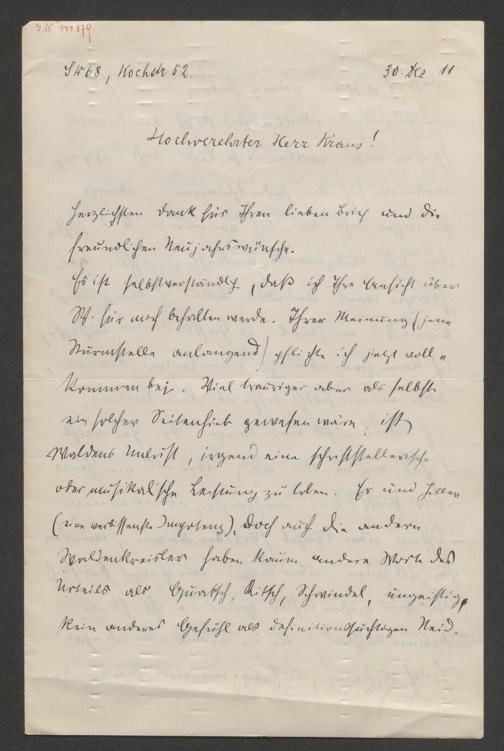 I.N. 141.879
SW 68, Kochstr 52.
30. Dez 11
Hochverehrter Herr Kraus!
Herzlichsten Dank für Ihren lieben Brief und die
freundlichen Neujahrswünsche.
Es ist selbstverständlich, daß ich Ihre Ansicht über
Sch. für mich behalten werde. Ihrer Meinung (jene
Sturmstelle anlangend) pflichte ich jetzt voll-
kommen bei. Viel trauriger aber als selbst
ein solcher Seitenhieb gewesen wäre, ist
Waldens Unlust, irgend eine schriftstellerische
oder musikalische Leistung zu loben. Er und Hiller
(eine verbissenste Impotenz), doch auch die andern
Waldenkreisler haben kaum andere Worte des
Urteils als Quatsch, Kitsch, Schwindel, ungeistig,
kein anderes Gefühl als definitionssüchtigen Neid.